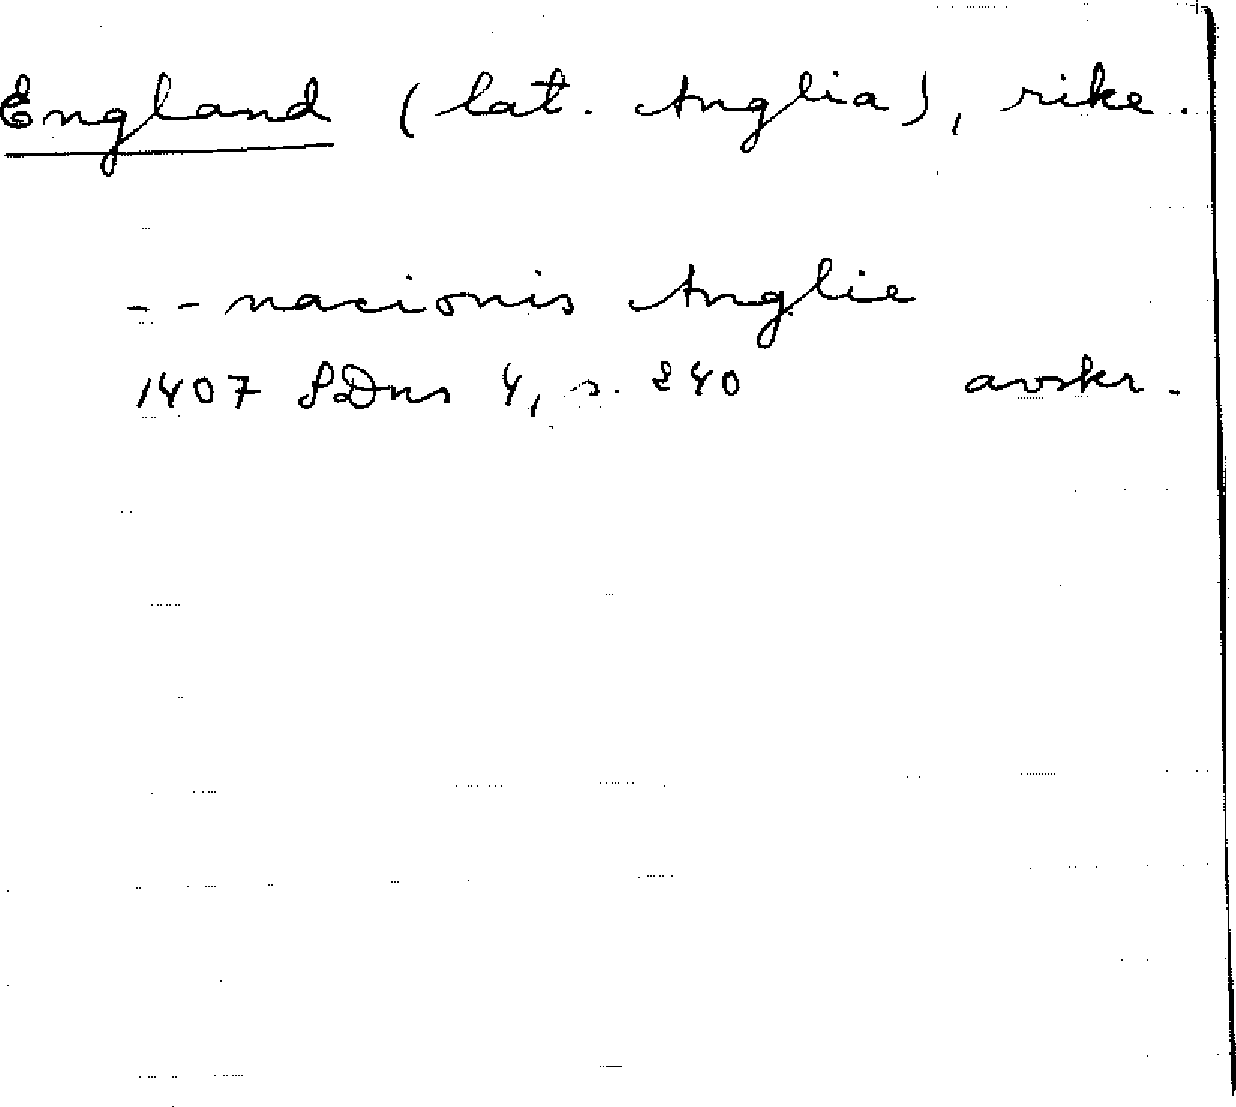 England (lat. Anglia), rike.
-- nacionis Anglie
1407 SDns 4, s. 240 avskr.